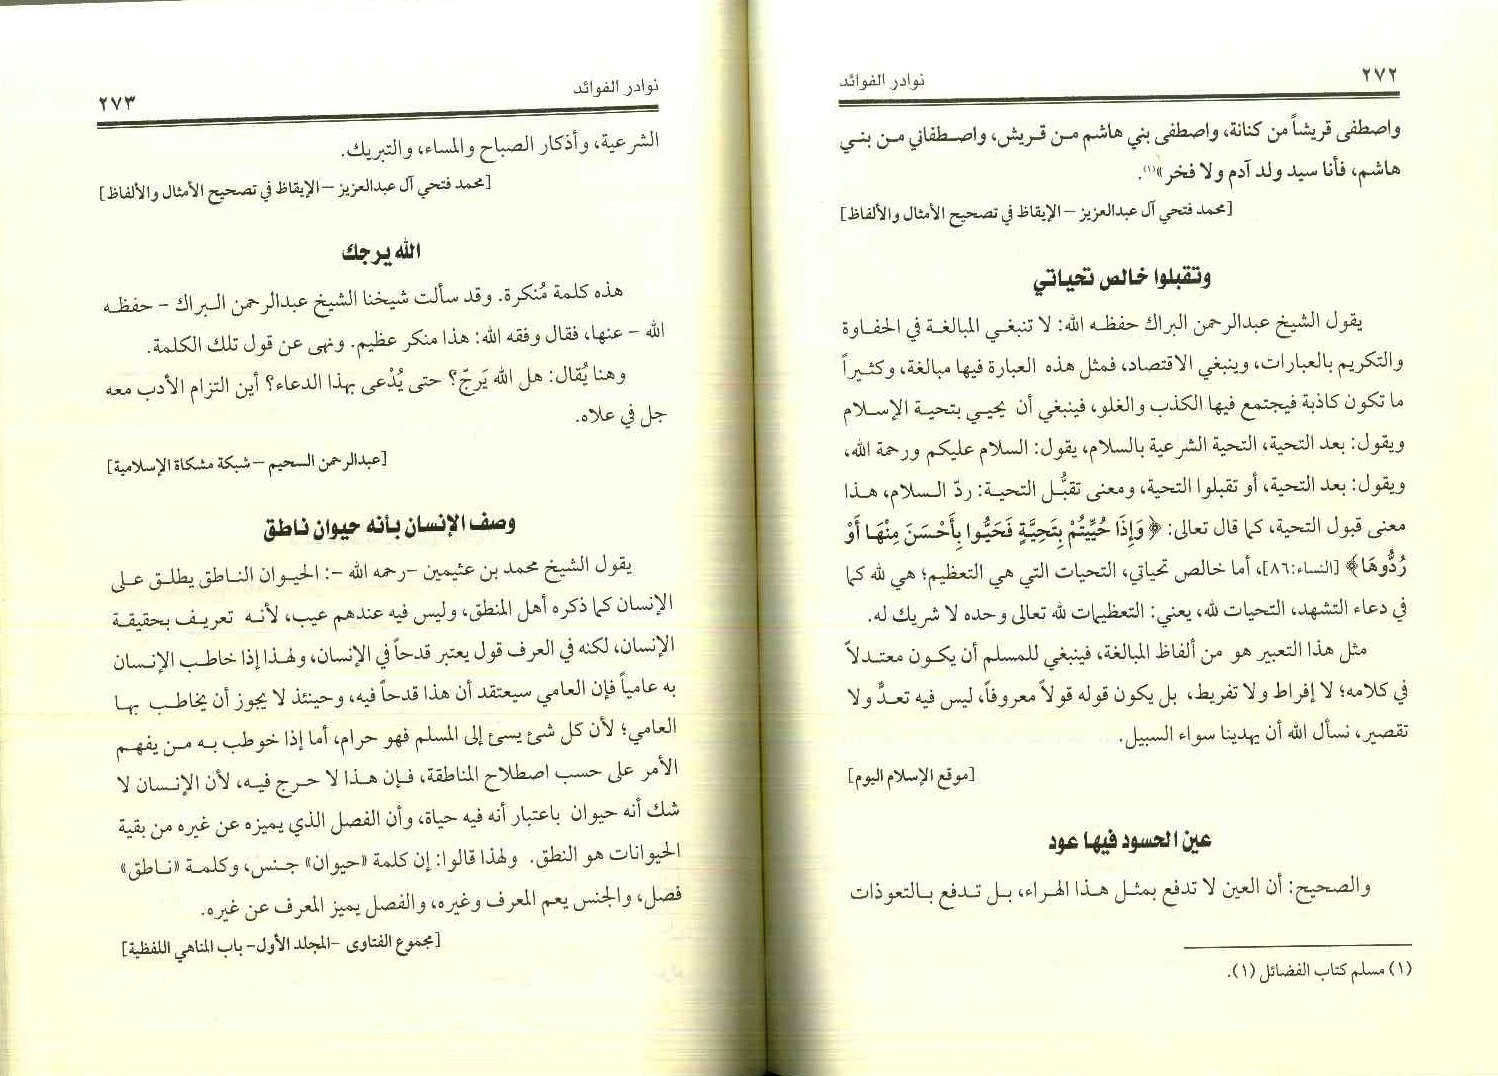 ٢٧٢
نوادر الفوائد
واصطفى قريشاً من كنانة، واصطفى بني هاشم من قريش، واصطفاني من بني
هاشم، فأنا سيد ولد آدم ولا فخر»(١).
[محمد فتحي آل عبدالعزيز – الإيقاظ في تصحيح الأمثال والألفاظ]
وتقبلوا خالص تحياتي
يقول الشيخ عبدالرحمن البراك حفظه الله: لا تنبغي المبالغة في الحفاوة
والتكريم بالعبارات، وينبغي الاقتصاد، فمثل هذه العبارة فيها مبالغة، وكثيراً
ما تكون كاذبة فيجتمع فيها الكذب والغلو، فينبغي أن يحيي بتحية الإسلام
ويقول: بعد التحية، التحية الشرعية بالسلام، يقول: السلام عليكم ورحمة الله،
ويقول: بعد التحية، أو تقبلوا التحية، ومعنى تقبُّل التحية: ردّ السلام، هذا
معنى قبول التحية، كما قال تعالى: ﴿وَإِذَا حُيِّيتُمْ بِتَحِيَّةٍ فَحَيُّوا بِأَحْسَنَ مِنْهَا أَوْ
رُدُّوهَا﴾ [النساء:٨٦]، أما خالص تحياتي، التحيات التي هي التعظيم؛ هي لله كما
في دعاء التشهد، التحيات لله، يعني: التعظيمات لله تعالى وحده لا شريك له.
مثل هذا التعبير هو من ألفاظ المبالغة، فينبغي للمسلم أن يكون معتدلاً
في كلامه؛ لا إفراط ولا تفريط، بل يكون قوله قولاً معروفاً، ليس فيه تعدٍّ ولا
تقصير، نسأل الله أن يهدينا سواء السبيل.
[موقع الإسلام اليوم]
عين الحسود فيها عود
والصحيح: أن العين لا تدفع بمثل هذا الهراء، بل تدفع بالتعوذات
(١) مسلم كتاب الفضائل (١).
نوادر الفوائد
٢٧٣
الشرعية، وأذكار الصباح والمساء، والتبريك.
[محمد فتحي آل عبدالعزيز – الإيقاظ في تصحيح الأمثال والألفاظ]
الله يرجك
هذه كلمة مُنكرة. وقد سألت شيخنا الشيخ عبدالرحمن البراك – حفظه
الله – عنها، فقال وفقه الله: هذا منكر عظيم. ونهى عن قول تلك الكلمة.
وهنا يُقال: هل الله يَرجّ؟ حتى يُدْعى بهذا الدعاء؟ أين التزام الأدب معه
جل في علاه.
[عبدالرحمن السحيم – شبكة مشكاة الإسلامية]
وصف الإنسان بأنه حيوان ناطق
يقول الشيخ محمد بن عثيمين –رحمه الله –: الحيوان الناطق يطلق على
الإنسان كما ذكره أهل المنطق، وليس فيه عندهم عيب، لأنه تعريف بحقيقة
الإنسان، لكنه في العرف قول يعتبر قدحاً في الإنسان، ولهذا إذا خاطب الإنسان
به عامياً فإن العامي سيعتقد أن هذا قدحاً فيه، وحينئذ لا يجوز أن يخاطب بها
العامي؛ لأن كل شئ يسئ إلى المسلم فهو حرام، أما إذا خوطب به من يفهم
الأمر على حسب اصطلاح المناطقة، فإن هذا لا حرج فيه، لأن الإنسان لا
شك أنه حيوان باعتبار أنه فيه حياة، وأن الفصل الذي يميزه عن غيره من بقية
الحيوانات هو النطق. ولهذا قالوا: إن كلمة «حيوان» جنس، وكلمة «ناطق»
فصل، والجنس يعم المعرف وغيره، والفصل يميز المعرف عن غيره.
[مجموع الفتاوى –المجلد الأول– باب المناهي اللفظية]